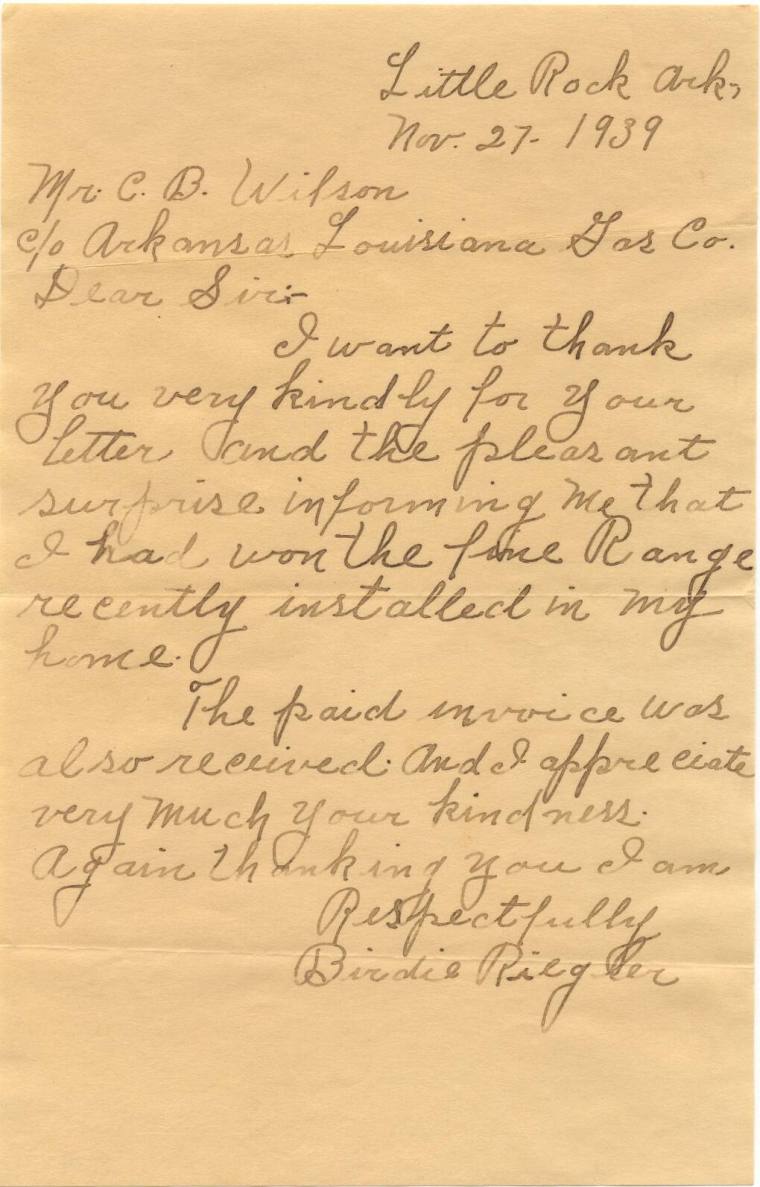 Little Rock Ark,
Nov. 27- 1939
Mr. C. B. Wilson
c/o Arkansas Louisiana Gas Co.
Dear Sir:-
I want to thank
you very kindly for your
letter and the pleasant
surprise informing me that
I had won the fine Range
recently installed in my
home.
The paid invoice was
also received. And I appreciate
very much your kindness.
Again thanking you I am
Respectfully
Birdie Riegler